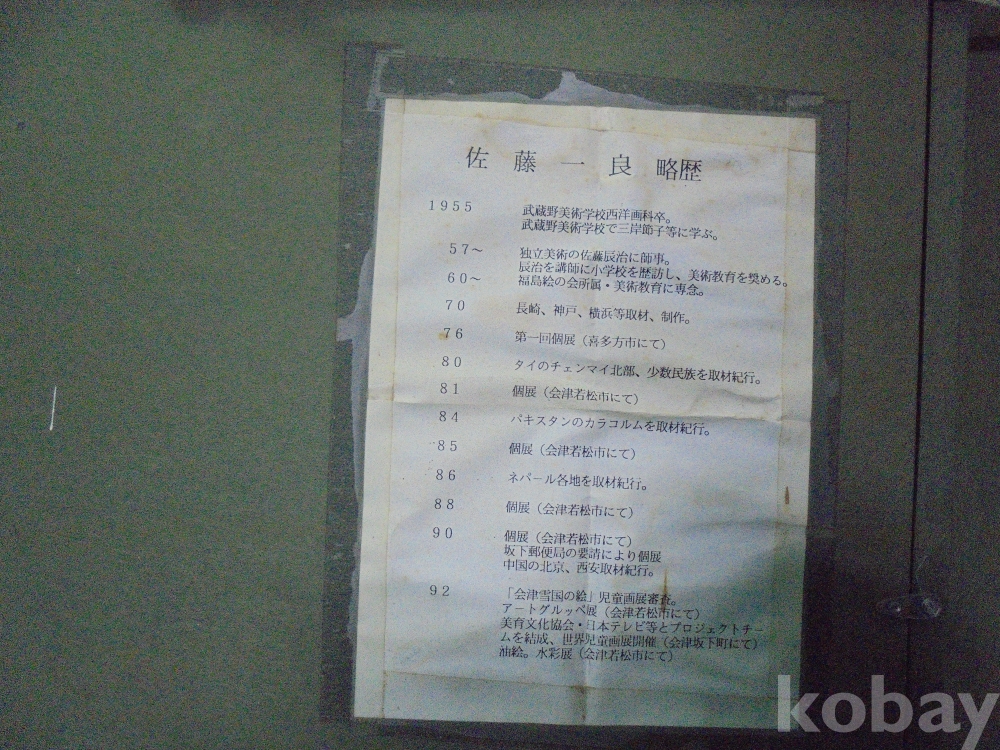 佐藤一良 略歴
1955 武蔵野美術学校西洋画科卒。
武蔵野美術学校で三岸節子等に学ぶ。
57～ 独立美術の佐藤辰治に師事。
辰治を講師に小学校を歴訪し、美術教育を奨める。
60～ 福島絵の会所属・美術教育に専念。
70 長崎、神戸、横浜等取材、制作。
76 第一回個展（喜多方市にて）
80 タイのチェンマイ北部、少数民族を取材紀行。
81 個展（会津若松市にて）
84 パキスタンのカラコルムを取材紀行。
85 個展（会津若松市にて）
86 ネパール各地を取材紀行。
88 個展（会津若松市にて）
90 個展（会津若松市にて）
坂下郵便局の要請により個展
中国の北京、西安取材紀行。
92 「会津雪国の絵」児童画展審査。
アートグルッペ展（会津若松市にて）
美育文化協会・日本テレビ等とプロジェクトチー
ムを結成、世界児童画展開催（会津坂下町にて）
油絵。水彩展（会津若松市にて）
kobay